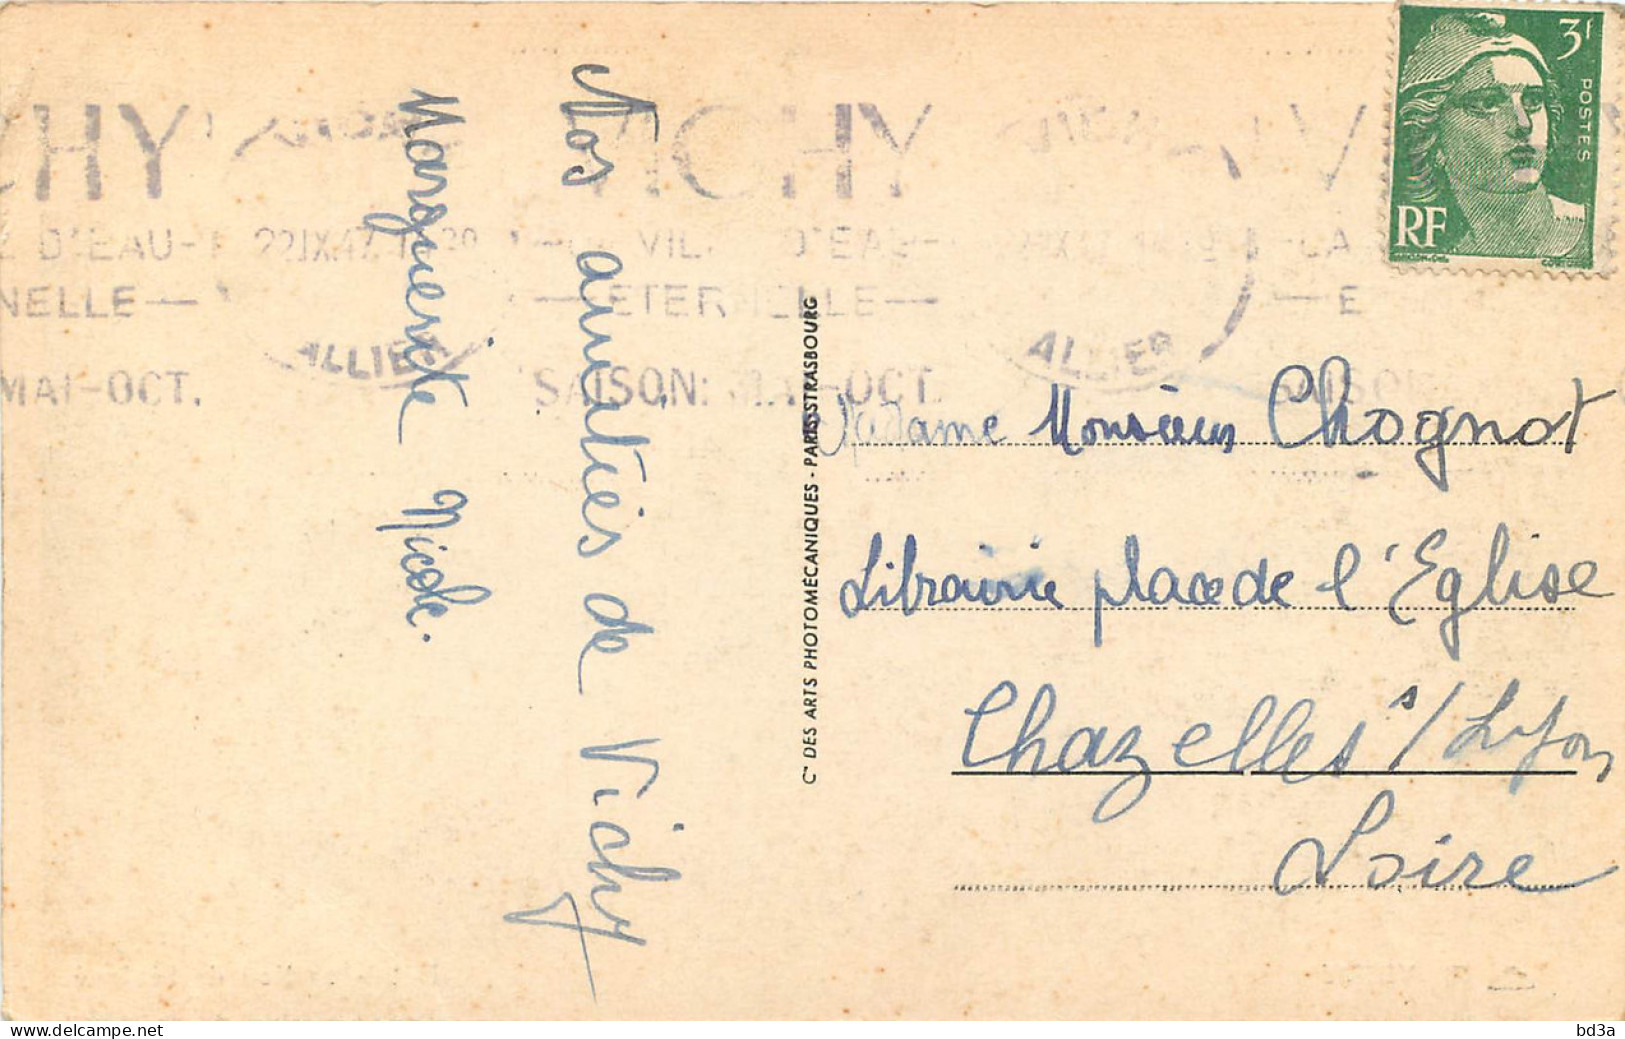 Nos amitiés de Vichy
Marguerite Nicole.
VICHY
22 IX 47
LA VILLE D'EAU
ETERNELLE
ALLIER
SAISON: MAI-OCT.
3f
POSTES
RF
Cie DES ARTS PHOTOMÉCANIQUES - PARIS-STRASBOURG
Madame Monsieur Chognot
Librairie place de l'Eglise
Chazelles s/Lyon
Loire
delcampe.net
bd3a